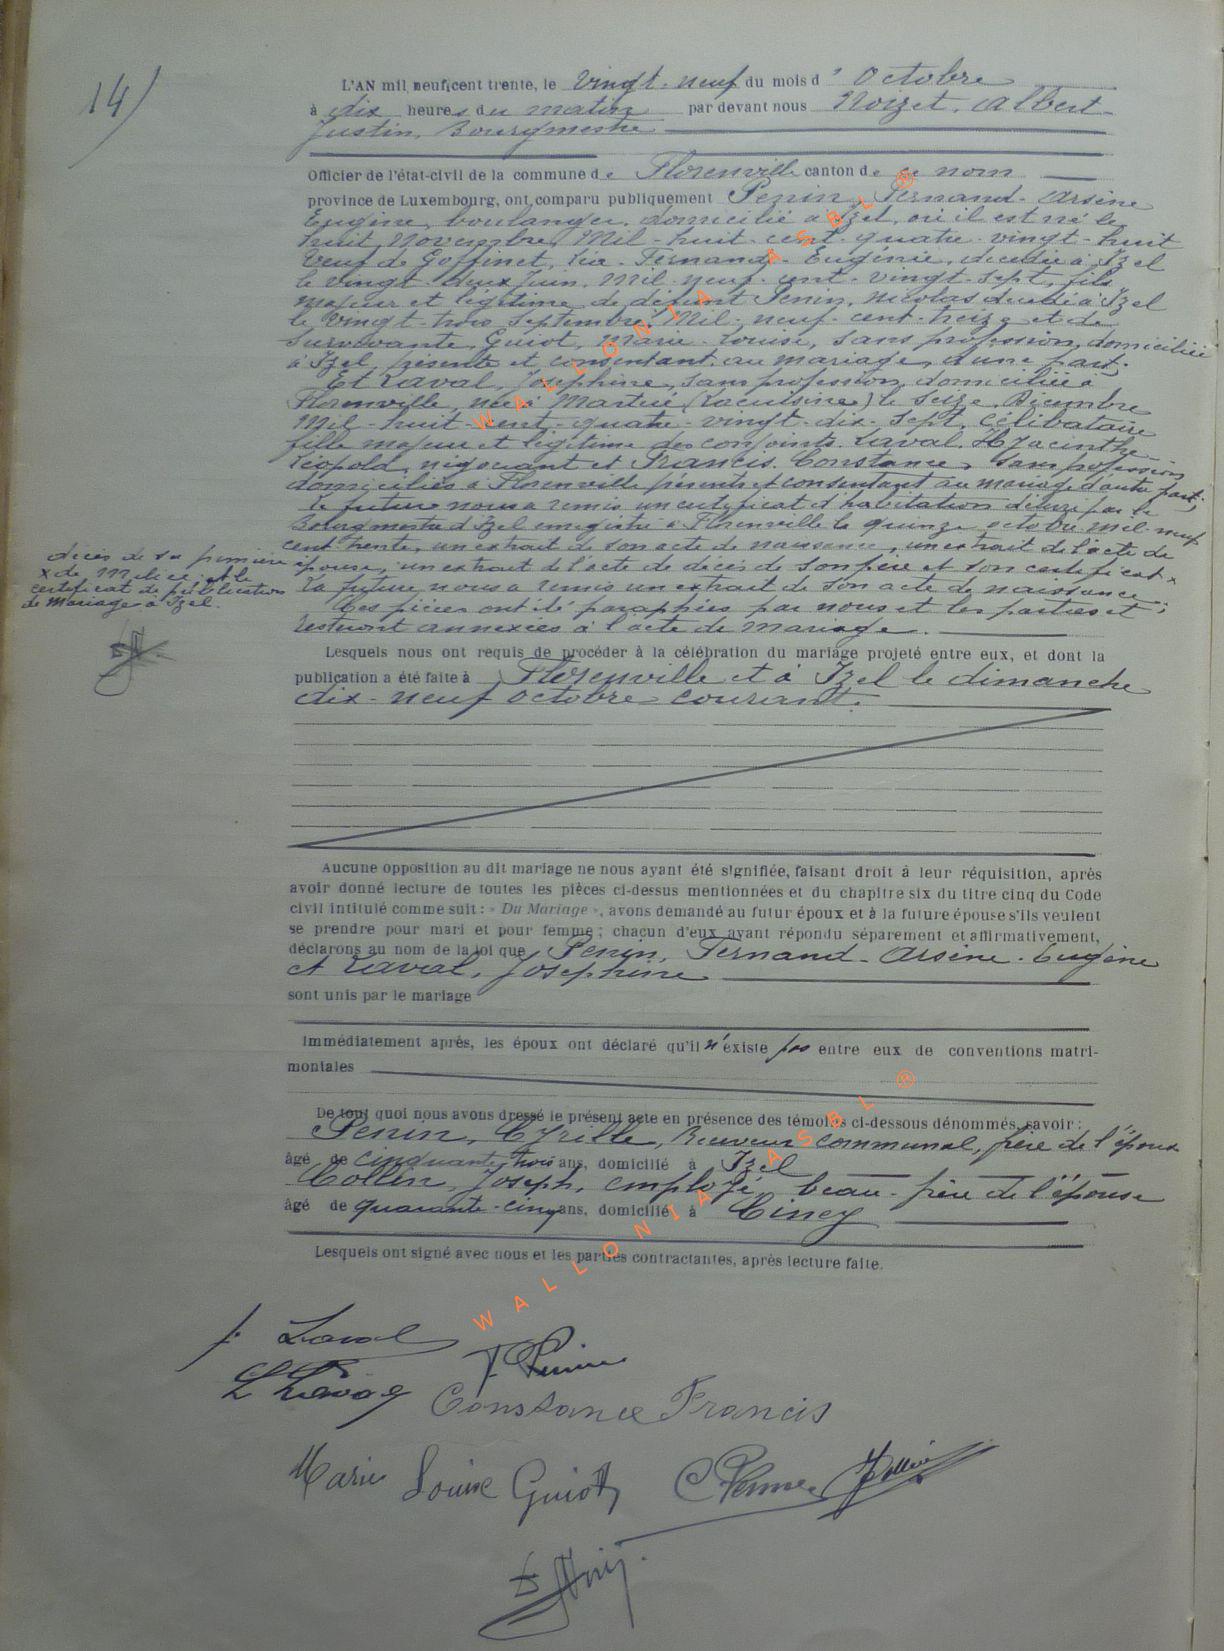 14)
L'AN mil neuf cent trente, le vingt-neuf du mois d'Octobre
à dix heures du matin par devant nous Noizet, Albert
Justin, Bourgmestre
Officier de l'état-civil de la commune de Florenville canton de ce nom
province de Luxembourg, ont comparu publiquement Penin, Fernand-Arsène
Eugène, boulanger, domicilié à Izel, où il est né le
huit Novembre Mil-huit-cent-quatre-vingt-huit
veuf de Goffinet, Fernande-Eugénie, décédée à Izel
le vingt-deux Juin Mil-neuf-cent-vingt-sept, fils
majeur et légitime de défunt Penin, Nicolas décédé à Izel
le vingt-trois Septembre Mil-neuf-cent-treize et de
survivante Guiot, Marie-Louise, sans profession, domiciliée
à Izel, présente et consentant au mariage, d'une part.
Et Laval, Joséphine, sans profession, domiciliée à
Florenville, née à Martué (Lacuisine) le seize Décembre
Mil-huit-cent-quatre-vingt-dix-sept, célibataire
fille majeure et légitime des conjoints Laval, Hyacinthe
Léopold, négociant et Francis, Constance, sans profession
domiciliés à Florenville présents et consentant au mariage d'autre part;
Le futur nous a remis un certificat d'habitation délivré par le
Bourgmestre d'Izel enregistré à Florenville le quinze octobre mil-neuf
cent trente, un extrait de son acte de naissance, un extrait de l'acte de
décès de sa première
épouse, un extrait de l'acte de décès de son père et son certificat x
x de Milice, et le
certificat de publication
de Mariage à Izel.
La future nous a remis un extrait de son acte de naissance;
Ces pièces ont été paraphées par nous et les parties et
resteront annexées à l'acte de mariage.
Lesquels nous ont requis de procéder à la célébration du mariage projeté entre eux, et dont la
publication a été faite à Florenville et à Izel le dimanche
dix-neuf octobre courant.
Aucune opposition au dit mariage ne nous ayant été signifiée, faisant droit à leur réquisition, après
avoir donné lecture de toutes les pièces ci-dessus mentionnées et du chapitre six du titre cinq du Code
civil intitulé comme suit : « Du Mariage », avons demandé au futur époux et à la future épouse s'ils veulent
se prendre pour mari et pour femme ; chacun d'eux ayant répondu séparement et affirmativement,
déclarons au nom de la loi que Penin, Fernand-Arsène-Eugène
et Laval, Joséphine
sont unis par le mariage
Immédiatement après, les époux ont déclaré qu'il n'existe pas entre eux de conventions matri-
moniales
De tout quoi nous avons dressé le présent acte en présence des témoins ci-dessous dénommés, savoir :
Penin, Cyrille, Receveur communal, frère de l'époux
âgé de cinquante trois ans, domicilié à Izel
Collin, Joseph, employé, beau-frère de l'épouse
âgé de quarante-cinq ans, domicilié à Ciney
Lesquels ont signé avec nous et les parties contractantes, après lecture faite.
J. Laval
F. Penin
L Laval
Constance Francis
Marie Louise Guiot
C Penin
J Collin
WALLONIA ASBL ®
WALLONIA ASBL ®